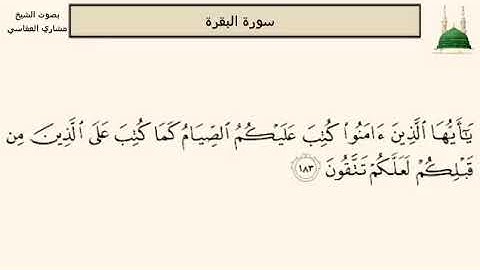 سورة البقرة
بصوت الشيخ
مشاري العفاسي
يَٰٓأَيُّهَا ٱلَّذِينَ ءَامَنُوا۟ كُتِبَ عَلَيْكُمُ ٱلصِّيَامُ كَمَا كُتِبَ عَلَى ٱلَّذِينَ مِن
قَبْلِكُمْ لَعَلَّكُمْ تَتَّقُونَ ١٨٣